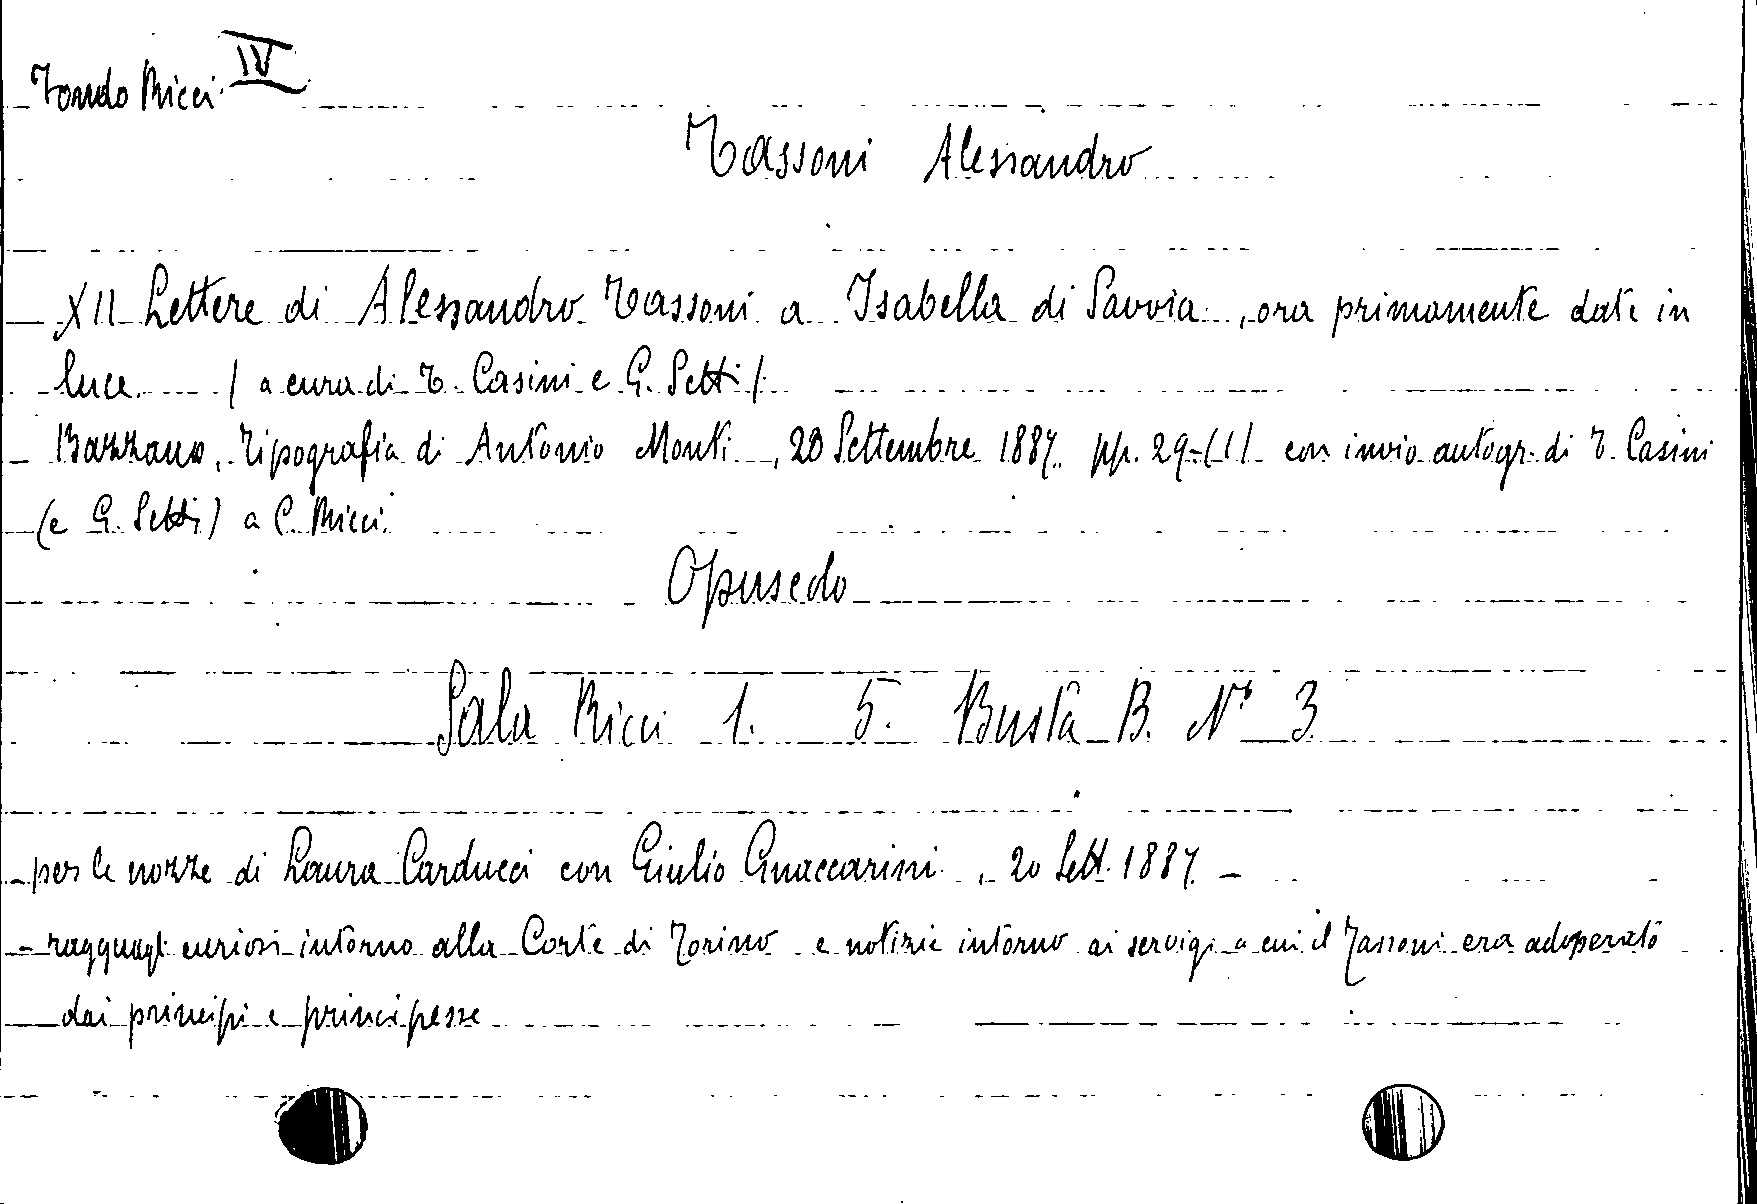 Fondo Ricci IV
Tassoni Alessandro
XII Lettere di Alessandro Tassoni a Isabella di Savoia, ora primamente date in
luce. ( a cura di T. Casini e G. Setti )
Bazzano, Tipografia di Antonio Monti, 20 Settembre 1887. pp. 29-(1) con invio autogr. di T. Casini
(e G. Setti) a C. Ricci.
Opuscolo
Sala Ricci 1. 5. Busta B. N° 3
per le nozze di Laura Carducci con Giulio Gnaccarini, 20 Sett. 1887 -
- ragguagli curiosi intorno alla Corte di Torino e notizie intorno ai servigi a cui il Tassoni era adoperato
dai principi e principesse